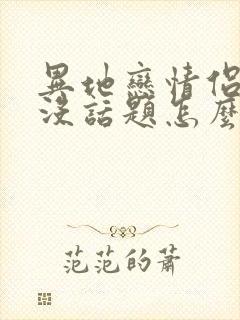 異地戀情侶
沒話題怎麼
范范的蕭